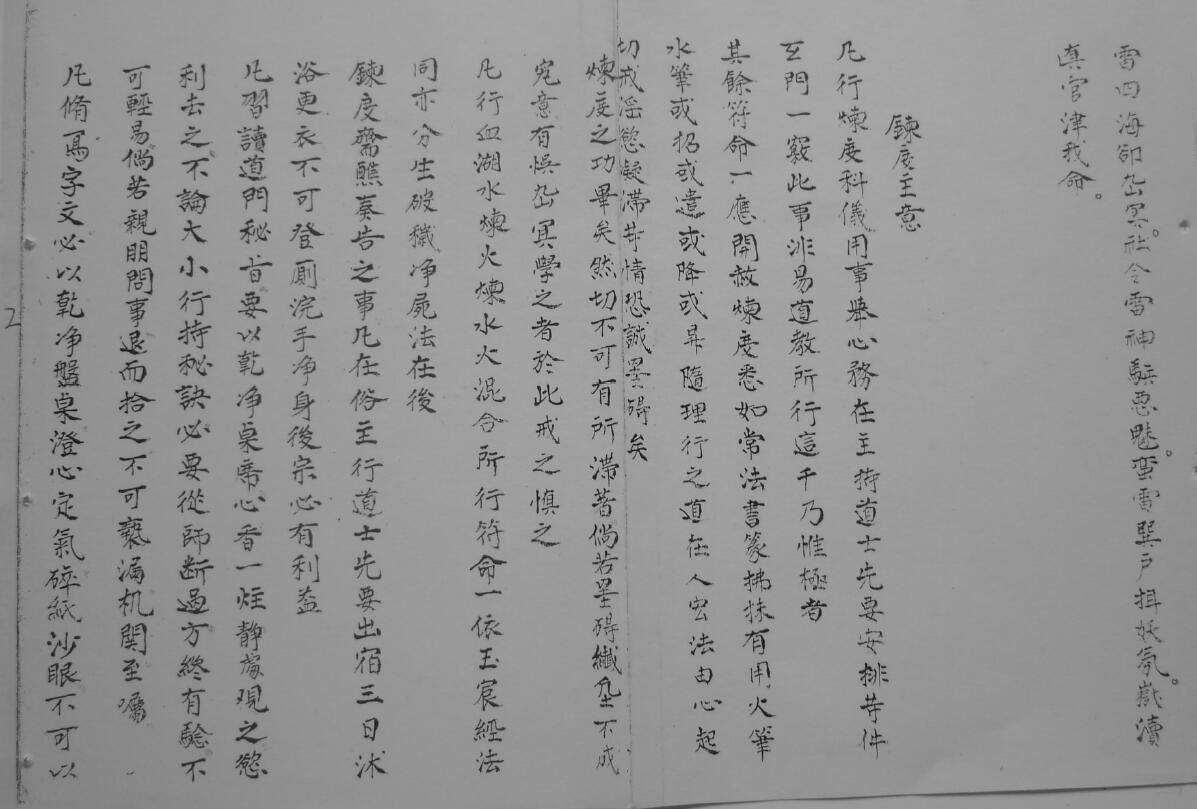 雷四海卻岳冥。社令雷神驅悪魅。蛮雷巽户揖妖氛。嶽瀆
真官津我命。
鍊度主意
凢行煉度科儀用事舉心務在主持道士先要安排䒭件
玄門一竅此事非易道教所行這千乃惟極者
其餘符命一應開赦煉度悉如常法書篆拂抹有用火筆
水筆或招或遣或降或昇隨理行之道在人宏法由心起
切戒淫慾凝滯䒭情恐誠罣碍矣
煉度之功畢矣然切不可有所滯著倘若罣碍纖塵不成
寃意有悞岳冥學之者於此戒之慎之
凢行血湖水煉火煉水火混合所行符命一依玉宸經法
同亦分生破穢净屍法在後
鍊度齋醮奏告之事凢在俗主行道士先要出宿三日沐
浴更衣不可登厠浣手净身後宗必有利益
凢習讀道門秘旨要以乾净桌席心香一炷静處覌之慾
利去之不論大小行持秘訣必要從師断過方終有驗不
可輕易倘若親朋問事退而拾之不可褻漏机関至囑
凢脩寫字文必以乾净盤桌澄心定氣碎紙沙眼不可以
2